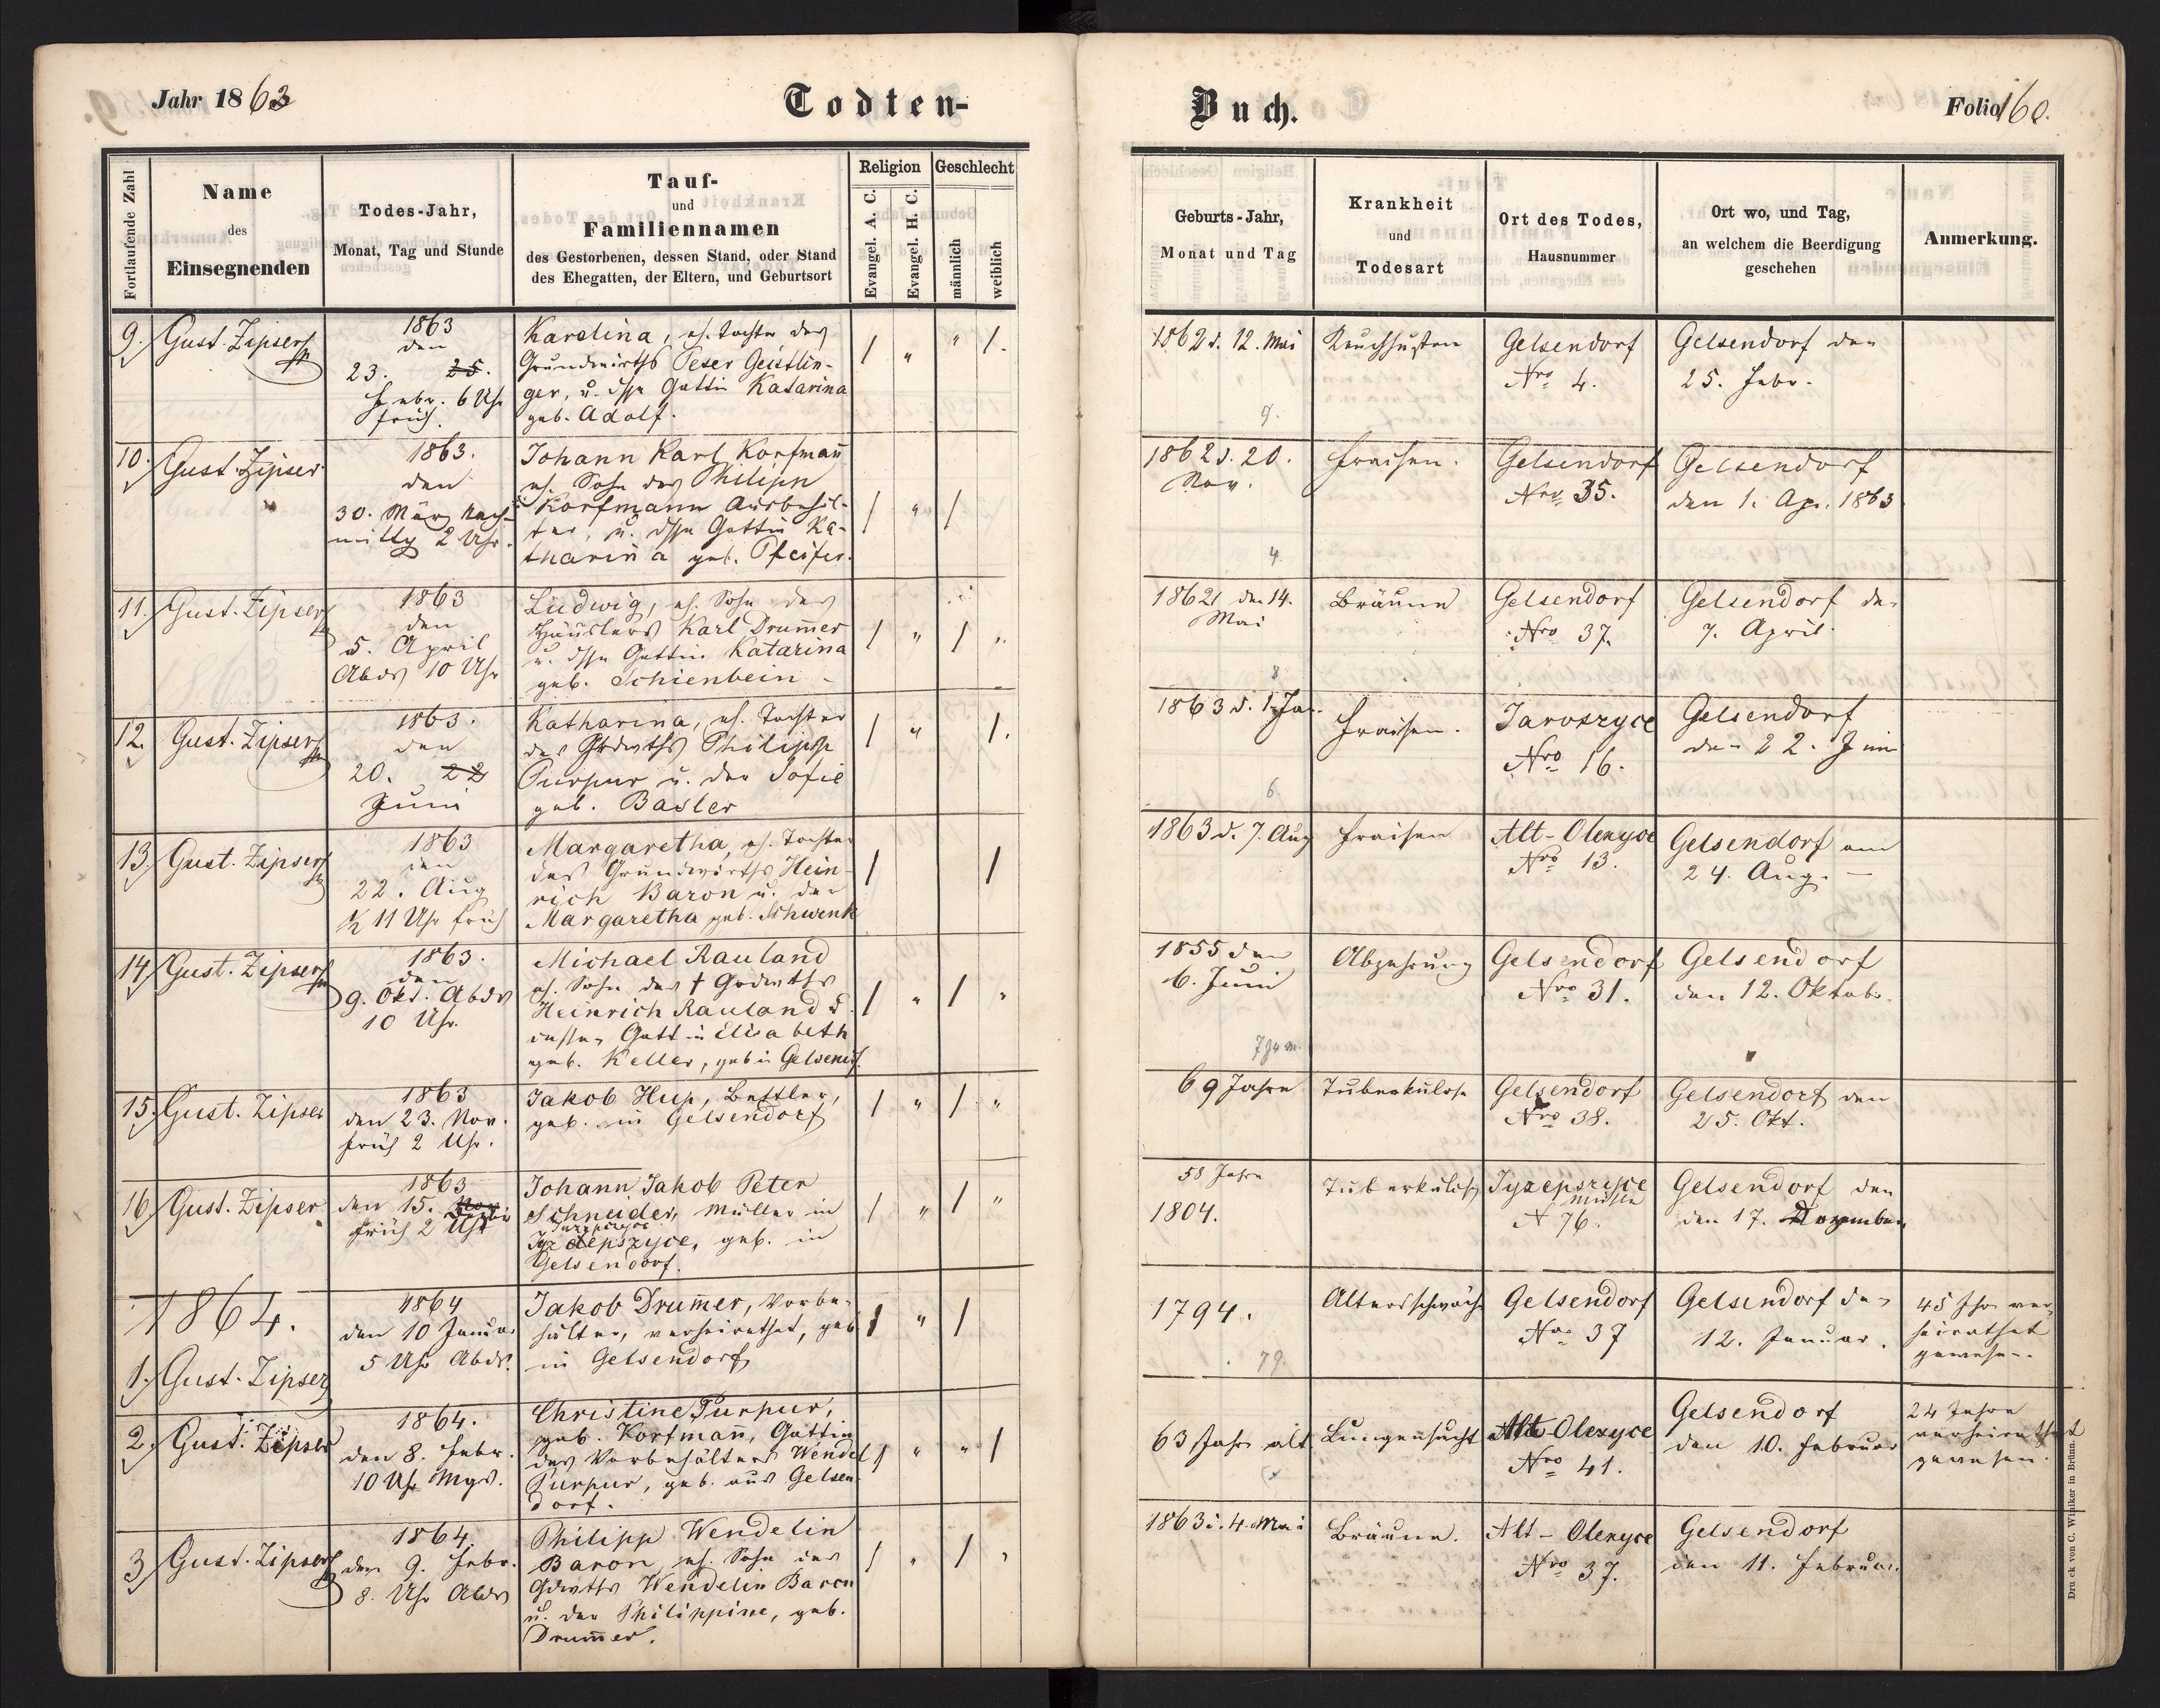 Jahr 1863
Todten-
Buch.
Folio 160.
Fortlaufende Zahl
Name
des
Einsegnenden
Todes-Jahr,
Monat, Tag und Stunde
Tauf-
und
Familiennamen
des Gestorbenen, dessen Stand, oder Stand
des Ehegatten, der Eltern, und Geburtsort
Religion
Evangel. A. C.
Evangel. H. C.
Geschlecht
männlich
weiblich
Geburts-Jahr,
Monat und Tag
Krankheit
und
Todesart
Ort des Todes,
Hausnummer
Ort wo, und Tag,
an welchem die Beerdigung
geschehen
Anmerkung.
9. Gust. Zipser
1863
den
23. 25.
Febr. 6 Uhr
früh.
Karolina, eh. Tochter des
Grundwirths Peter Geistlin-
ger, u. dssn Gattin Katarina
geb. Adolf.
/ " " /.
1862 d. 12. Mai
9.
Keuchhusten
Gelsendorf
Nro 4.
Gelsendorf den
25. Febr.
10. Gust. Zipser
1863.
den
30. März Nach-
mittg 2 Uhr.
Johann Karl Korfmañ
eh. Sohn des Philipp
Korfmann Ausbehäl-
ter, u. dssn Gattin Ka-
tharina geb. Pfeifer.
/ " /
1862 d. 20.
Nov.
4.
Fraisen.
Gelsendorf
Nro 35.
Gelsendorf
den 1. Ap. 1863
11. Gust. Zipser
1863
den
5. April
Abds 10 Uhr
Ludwig, eh. Sohn des
Häuslers Karl Drum̃er
u. dssn Gattin Katarina
geb. Schienbein
/ " / "
1862 den 14.
Mai
8.
Bräune
Gelsendorf
Nro 37.
Gelsendorf den
7. April.
12. Gust. Zipser
1863.
den
20. 22
Juni
Katharina, eh. Tochter
des Grdwths Philipp
Purpur u. der Sofie
geb. Basler
/ " /.
1863 d. 1. Jan.
6.
Fraisen.
Jaroszyce
Nro 16.
Gelsendorf
den 22. Juni
13. Gust. Zipser
1863
den
22. Aug
½ 11 Uhr früh
Margaretha, eh. Tochter
des Grundwirths Hein-
rich Baron u. der
Margaretha geb. Schwenk
/ /
1863 d. 7. Aug
Fraisen
Alt-Olexyce
Nro 13.
Gelsendorf am
24. Aug. -
14. Gust. Zipser
1863.
den
9. Okt. Abds
10 Uhr.
Michael Rauland
eh. Sohn des † Grdwths
Heinrich Rauland u.
dessen Gattin Elisabeth
geb. Keller, geb in Gelsendf.
/ " / "
1855 den
6. Juni
Abzehrung
Gelsendorf
Nro 31.
Gelsendorf
den 12. Oktobr.
15. Gust. Zipser
1863
den 23. Nov.
früh 2 Uhr.
Jakob Hup, Bettler,
geb. in Gelsendorf
/ " / "
69 Jahre
Tuberkulose
Gelsendorf
Nro 38.
Gelsendorf den
25. Okt.
16. Gust. Zipser
1863
den 15. Nov
früh 2 Uhr
Johann Jakob Peter
Schneider, Müller in
geb. in
Gelsendorf.
/ " / "
58 Jahre
1804.
Tuberkulose
N 76.
Gelsendorf den
den 17. Dezember
1864.
1. Gust. Zipser
1864
den 10 Januar
5 Uhr Abds.
Jakob Drum̃er, Vorbe-
hälter, verheirathet, geb.
in Gelsendorf
/ " /
1794.
79.
Altersschwäche
Gelsendorf
Nro 37
Gelsendorf den
12. Januar.
45 Jhr ver-
heirathet
gewesen.
2. Gust. Zipser
1864.
den 8. Febr.
10 Uhr Mgs.
Christine Purpur,
geb. Korfmañ, Gattin
des Vorbehälters Wendel
Purpur, geb. aus Gelsen-
dorf.
/ " " /
63 Jahr alt
Lungensucht
Alt-Olexyce
Nro 41.
Gelsendorf
den 10. Februar
24 Jahre
verheirathet
gewesen.
3. Gust. Zipser
1864.
den 9. Febr.
8. Uhr Abds
Philipp Wendelin
Baron, eh. Sohn des
Gdwths Wendelin Baron
u. der Philippine, geb.
Drum̃er.
/ " / "
1863 d. 4. Mai
Bräune.
Alt-Olexyce
Nro 37.
Gelsendorf
den 11. Februar.
Druck von C. Winiker in Brünn.